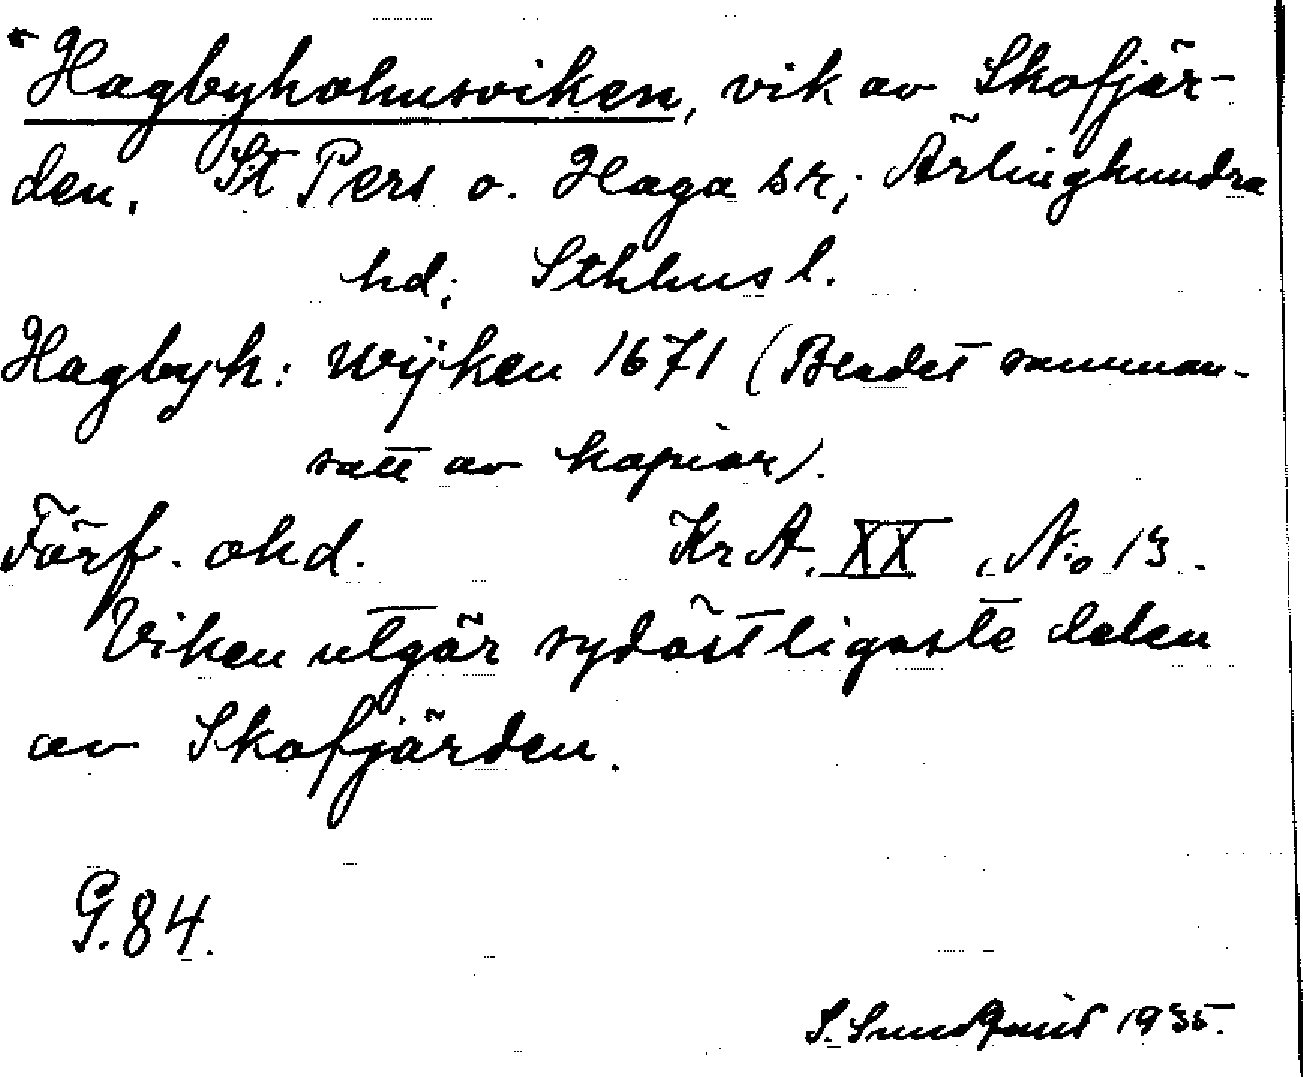 *Hagbyholmsviken, vik av Skofjär-
den, St Pers o. Haga sr; Ärlinghundra
hd; Sthlms l.
Hagbyh: Wijken 1671 (Bladet samman-
satt av kopior).
Förf. okd. Kr A. XX, No 13.
Viken utgör sydöstligaste delen
av Skofjärden.
G. 84.
S. Sundqvist 1935.